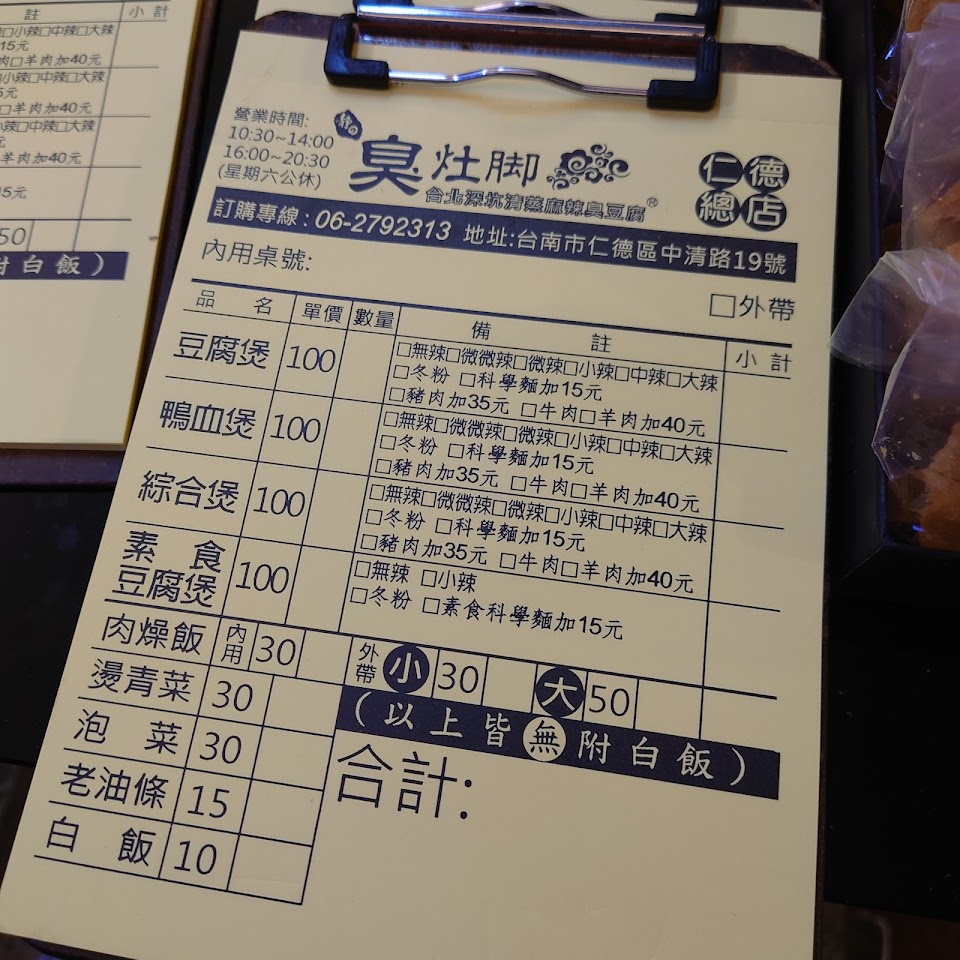 註 小計
辣□小辣□中辣□大辣
15元
肉□羊肉加40元
小辣□中辣□大辣
5元
□羊肉加40元
小辣□中辣□大辣
元
□羊肉加40元
15元
50
附白飯)
營業時間:
10:30~14:00
16:00~20:30
(星期六公休)
臭灶脚
台北深坑清蒸麻辣臭豆腐®
仁德
總店
訂購專線:06-2792313 地址:台南市仁德區中清路19號
內用桌號:
□外帶
品名 單價 數量 備註 小計
豆腐煲 100 □無辣□微微辣□微辣□小辣□中辣□大辣
□冬粉 □科學麵加15元
□豬肉加35元 □牛肉□羊肉加40元
鴨血煲 100 □無辣□微微辣□微辣□小辣□中辣□大辣
□冬粉 □科學麵加15元
□豬肉加35元 □牛肉□羊肉加40元
綜合煲 100 □無辣□微微辣□微辣□小辣□中辣□大辣
□冬粉 □科學麵加15元
□豬肉加35元 □牛肉□羊肉加40元
素食
豆腐煲 100 □無辣 □小辣
□冬粉 □素食科學麵加15元
肉燥飯 內用 30 外帶 小 30 大 50
燙青菜 30
(以上皆無附白飯)
泡菜 30
合計:
老油條 15
白飯 10